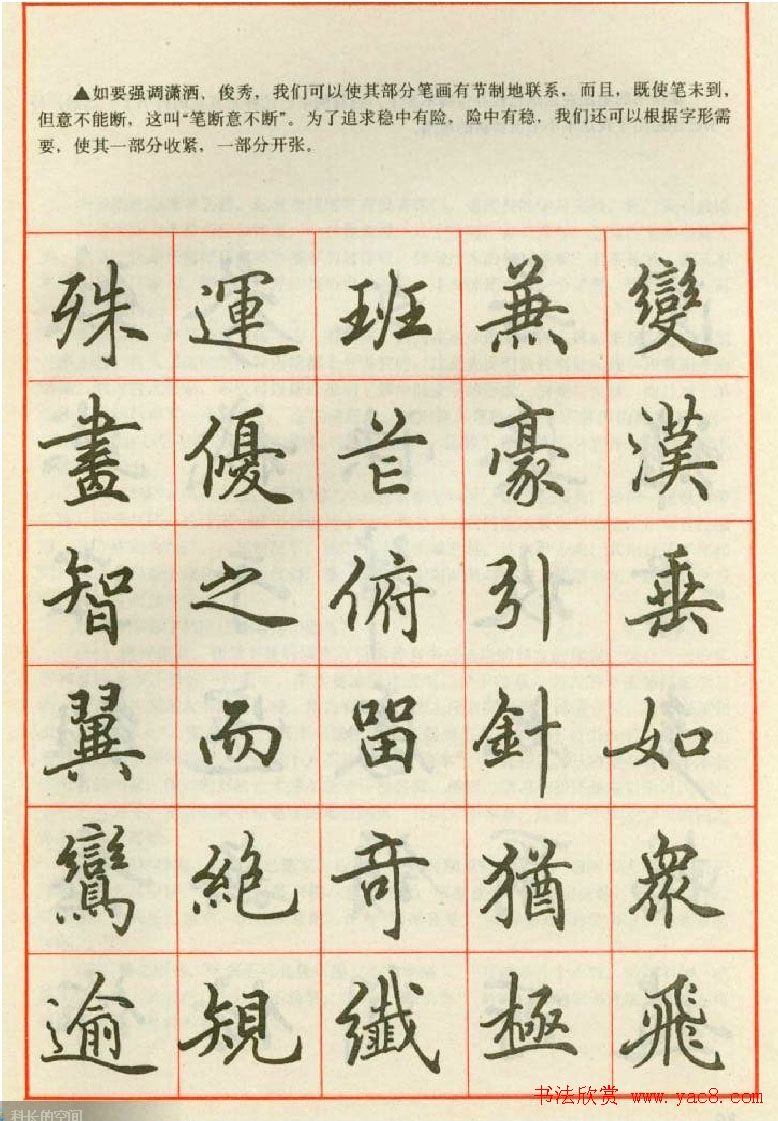 ▲如要强调潇洒、俊秀，我们可以使其部分笔画有节制地联系，而且，既使笔未到，
但意不能断，这叫“笔断意不断”。为了追求稳中有险，险中有稳，我们还可以根据字形需
要，使其一部分收紧，一部分开张。
變漢垂如衆飛
兼豪引針猶極
班芒俯留奇纖
運優之而絕規
殊畫智翼鸞逾
书法欣赏 www.yac8.com
科长的空间